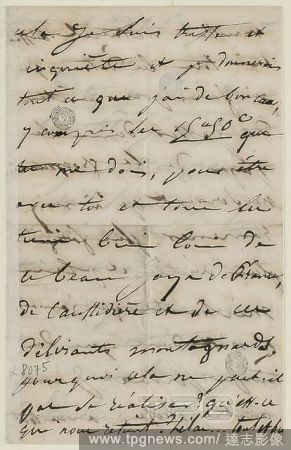 cela. Je suis triste et
inquiète et je donnerais
tout ce que j'ai de bon
y compris les que
tu me dois, pour être
avec toi et tous les
trois bien loin de
ce beau pays de France,
de Caussidière et de ces
délirants montagnards,
8075
pourquoi cela ne peut-il
pas se réaliser, qu'est-ce
qui nous retient
www.tpgnews.com / 達志影像